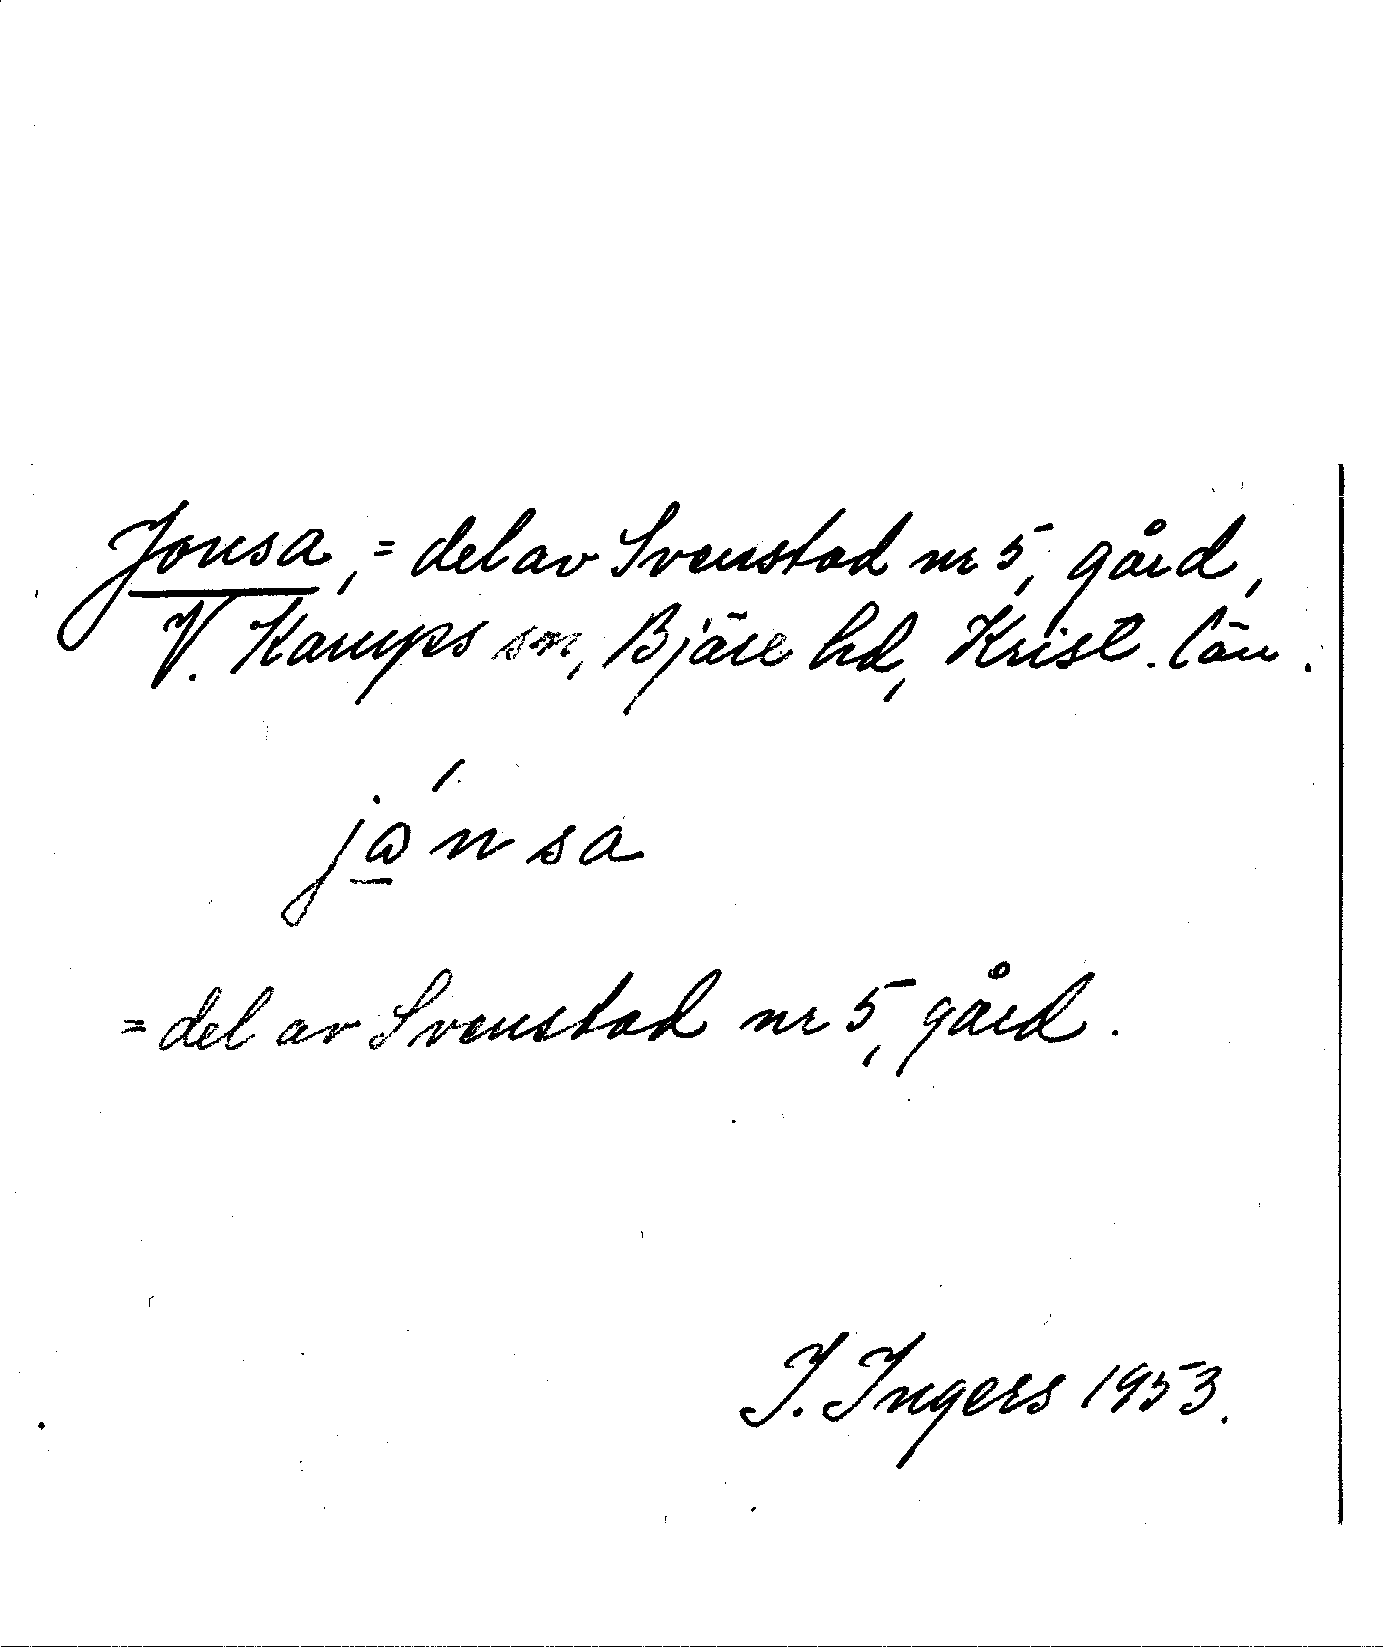 Jonsa, = del av Svenstad nr 5, gård,
V. Karups sn, Bjäre hd, Krist. län.
jo̲´nsa
= del av Svenstad nr 5, gård.
I. Ingers 1953.